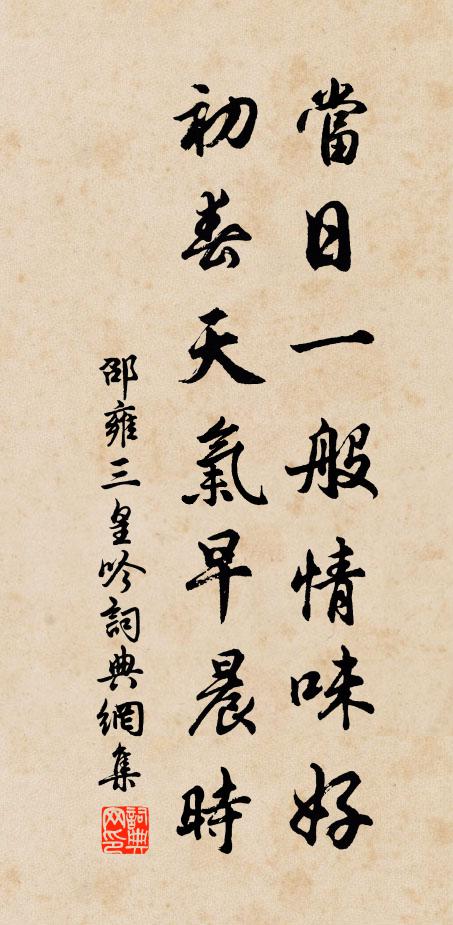 當日一般情味好
初春天氣早晨時
邵雍三皇吟詞典網集
詞典網印